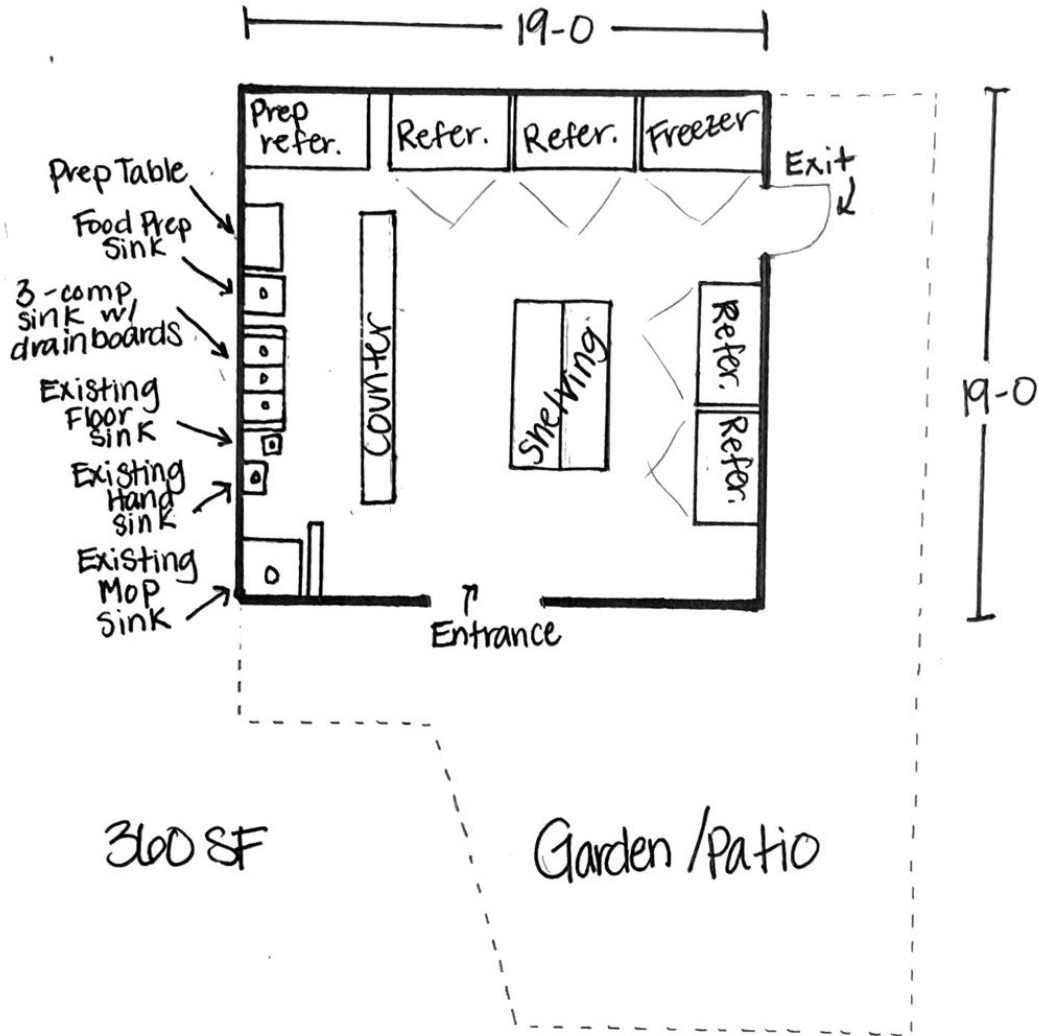 19-0
Prep
refer.
Refer.
Refer.
Freezer
Exit
Prep Table
Food Prep
Sink
3-comp
sink w/
drainboards
Existing
Floor
sink
Existing
Hand
sink
Existing
Mop
Sink
Counter
Shelving
Refer.
Refer.
19-0
Entrance
360 SF
Garden/Patio